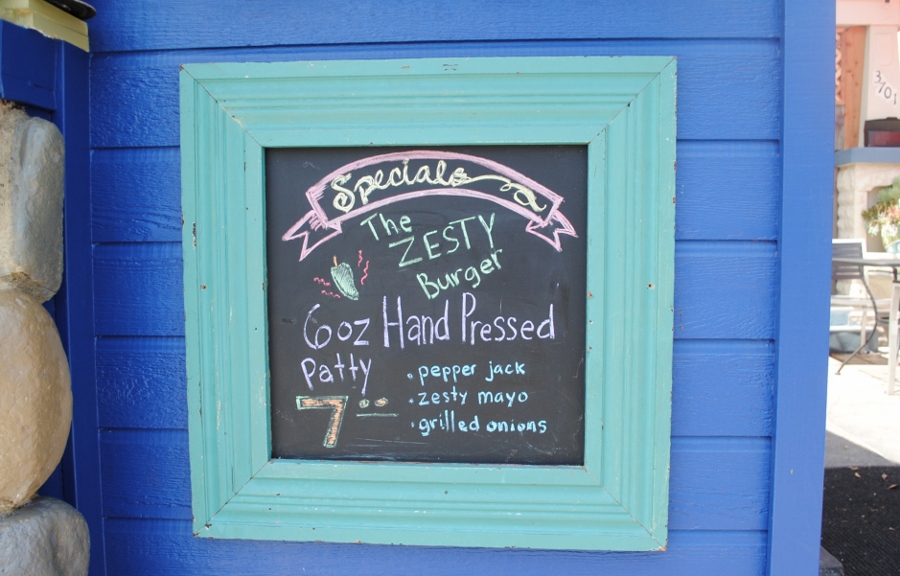 Specials
The
ZESTY
Burger
6oz Hand Pressed
Patty
• pepper jack
• zesty mayo
• grilled onions
7 00
3701